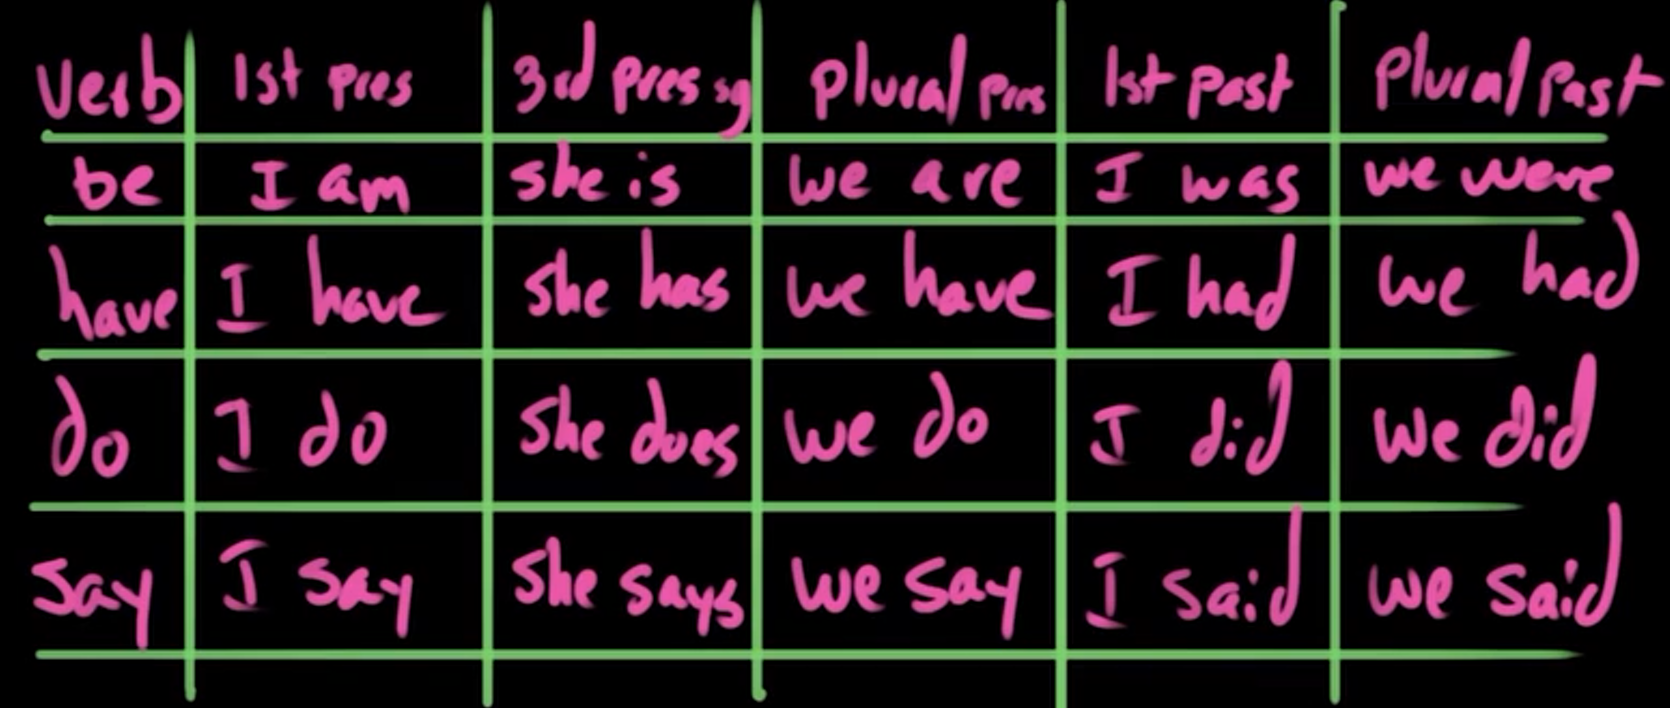 verb 1st pres 3rd pres sg plural pres 1st past plural past
be I am she is we are I was we were
have I have she has we have I had we had
do I do she does we do I did we did
say I say she says we say I said we said